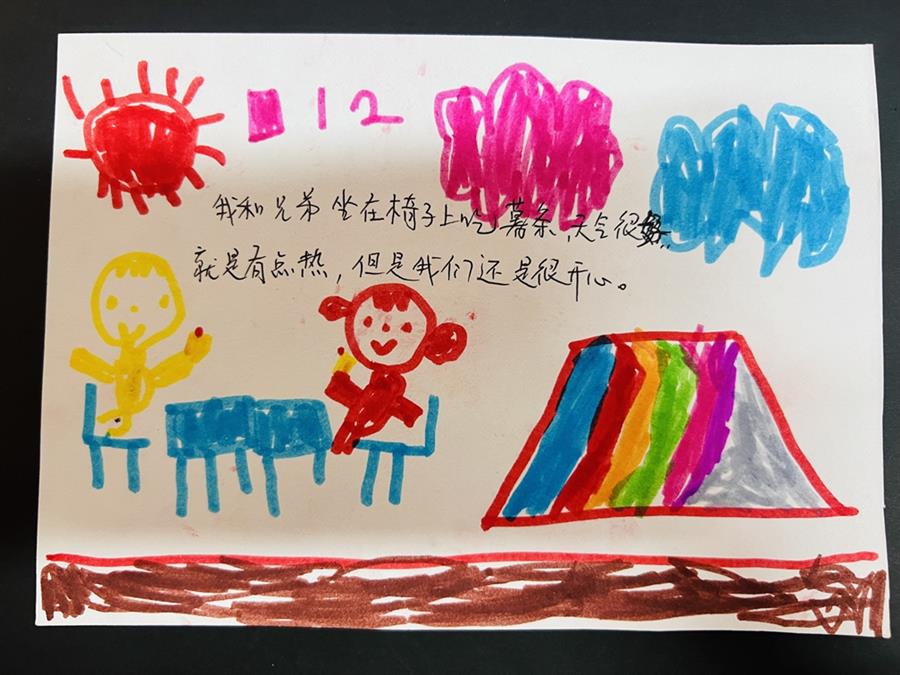 12
我和兄弟坐在椅子上吃薯条,天气很好,
就是有点热,但是我们还是很开心。